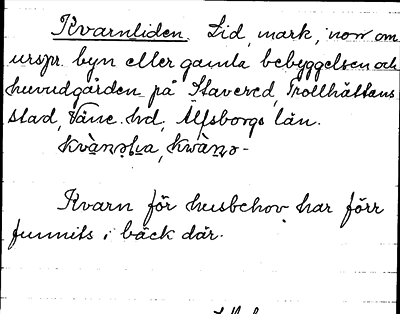 Kvarnliden. Lid, mark, norr om
urspr. byn eller gamla bebyggelsen och
huvudgården på Stavered, Trollhättans
stad, Väne hd, Älfsborgs län.

Kvarn för husbehov har förr
funnits i bäck där.